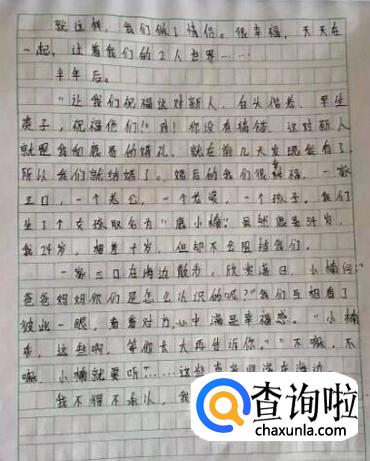 就这样，我们做了情侣。很幸福，天天在
一起，过着我们的2人世界……
半年后。
"让我们祝福这对新人，白头偕老，早生
贵子，祝福他们！"对！你没有搞错，这对新人
就是我和鹿哥的婚礼。就在前几天发现我有了，
所以我们就结婚了。婚后的我们很幸福，一家
三口，一个老公，一个老婆，一个孩子，我们
生了个女孩取名为"鹿小楠"虽然鹿哥34岁，
我24岁，相差十岁，但却不会阻挡我们。
一家三口在海边散步，欣赏落日，小楠问："
爸爸妈妈你们是怎么认识的呢？"我们互相看了
彼此一眼，看着对方，心中满是幸福感。"小楠
乖，这些啊，等你长大再告诉你。""不嘛，不
嘛，小楠就要听"……这些声音回荡在海边
我不得不承认，我
查询啦
chaxunla.com